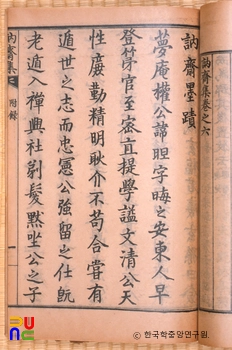 訥齋集卷之六
訥齋墨蹟
夢庵權公諱㫜字晦之安東人早
登第官至密直提學謚文淸公天
性廉勤精明耿介不苟合嘗有
遁世之志而忠憲公強留之仕旣
老遁入禪興社剃髮默坐公之子
訥齋集
附錄
一
© 한국학중앙연구원